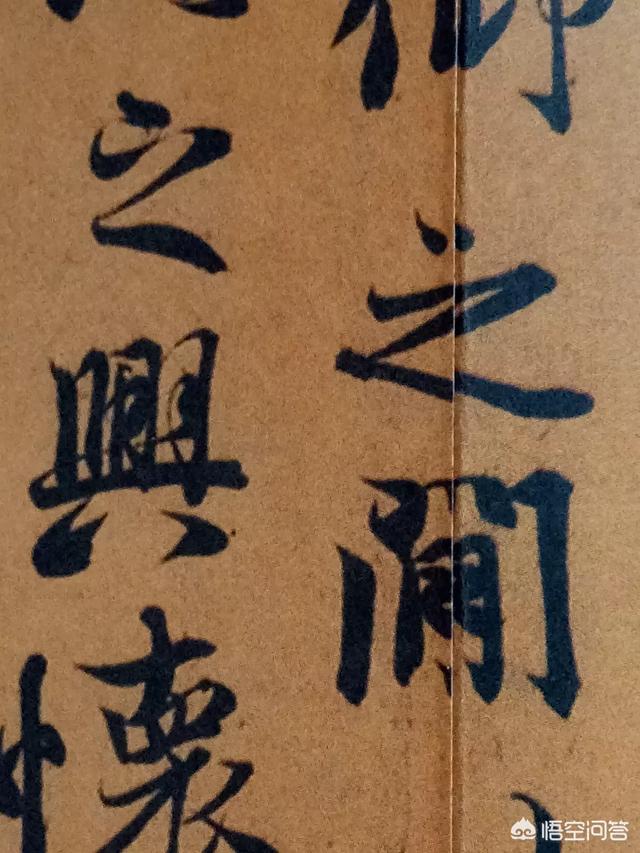 仰之閒
之興懷
悟空问答